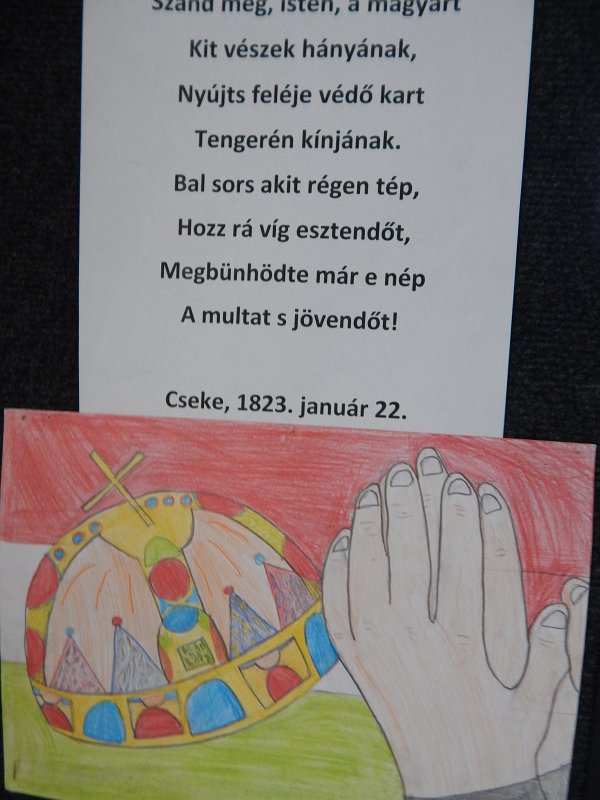 Szánd meg, Isten, a magyart
Kit vészek hányának,
Nyújts feléje védő kart
Tengerén kínjának.
Bal sors akit régen tép,
Hozz rá víg esztendőt,
Megbünhödte már e nép
A multat s jövendőt!
Cseke, 1823. január 22.